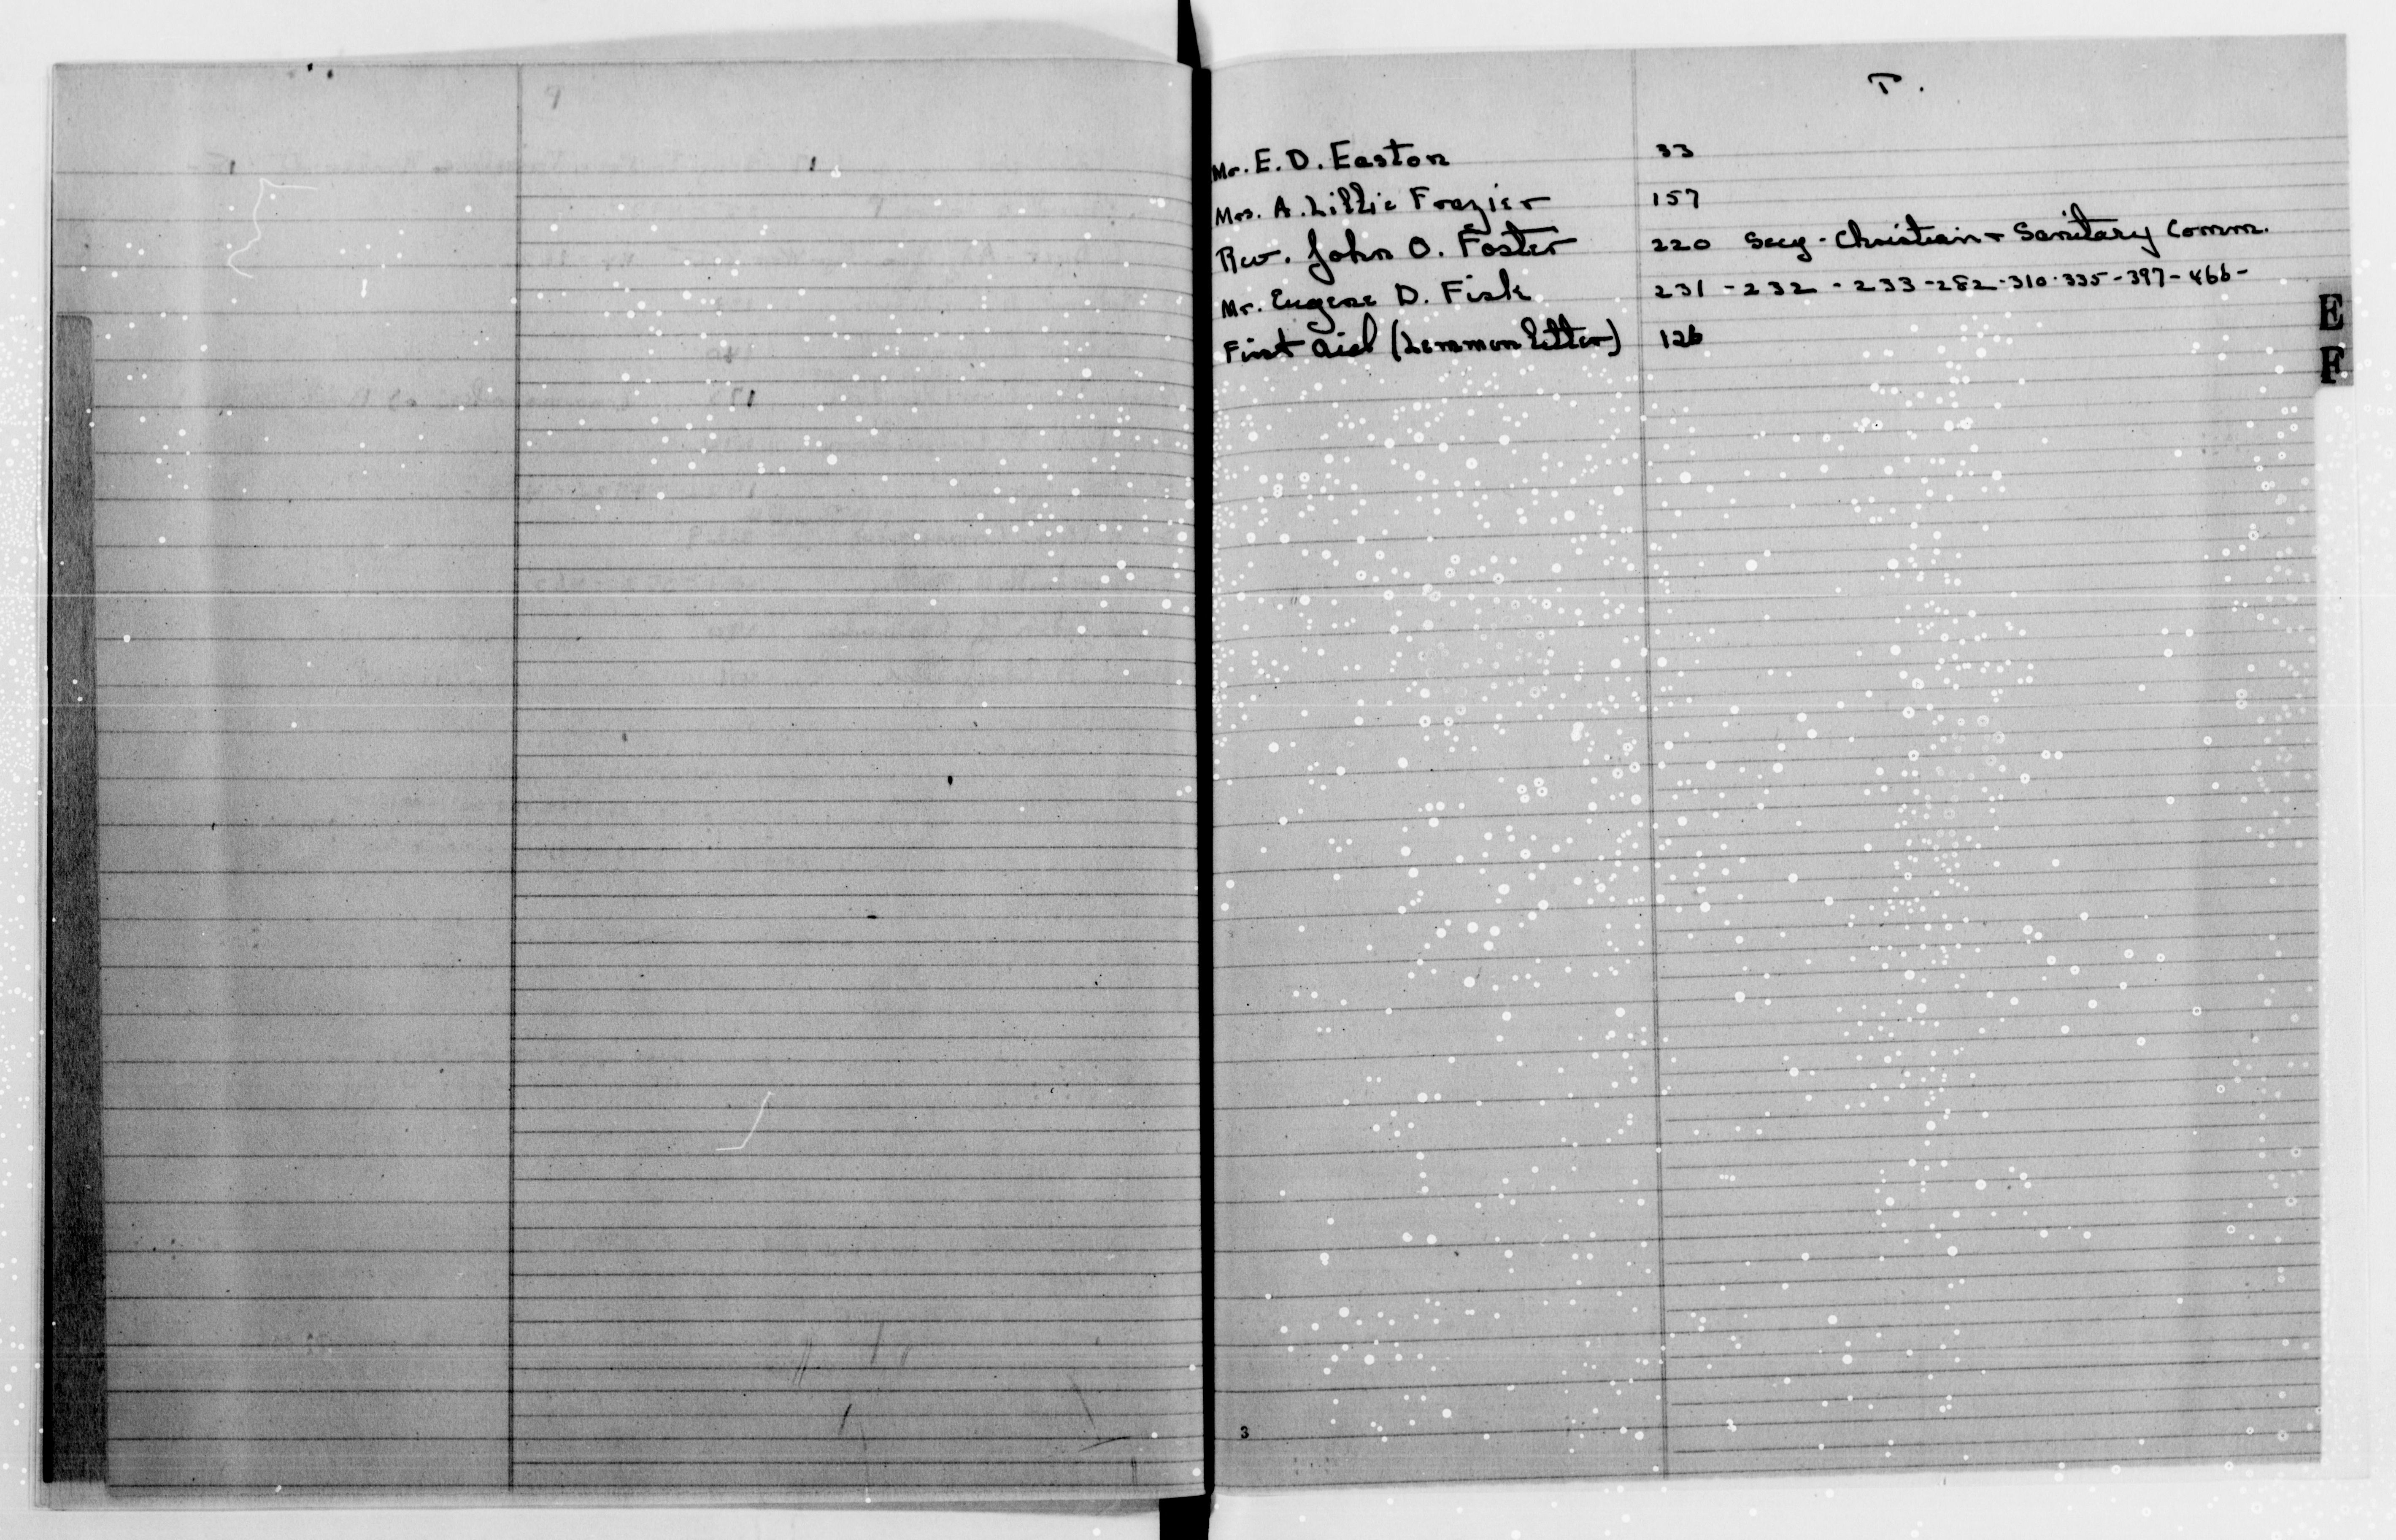 F.
Mr. E. D. Easton 33
Mrs. A. Lillie Frazier 157
Rev. John O. Foster 220 Secy - Christian + Sanitary Comm.
Mr. Eugene D. Fisk 231 - 232 - 233 - 282 - 310 - 335 - 397 - 466 -
First Aid (Lemmon letter) 126
E
F
3